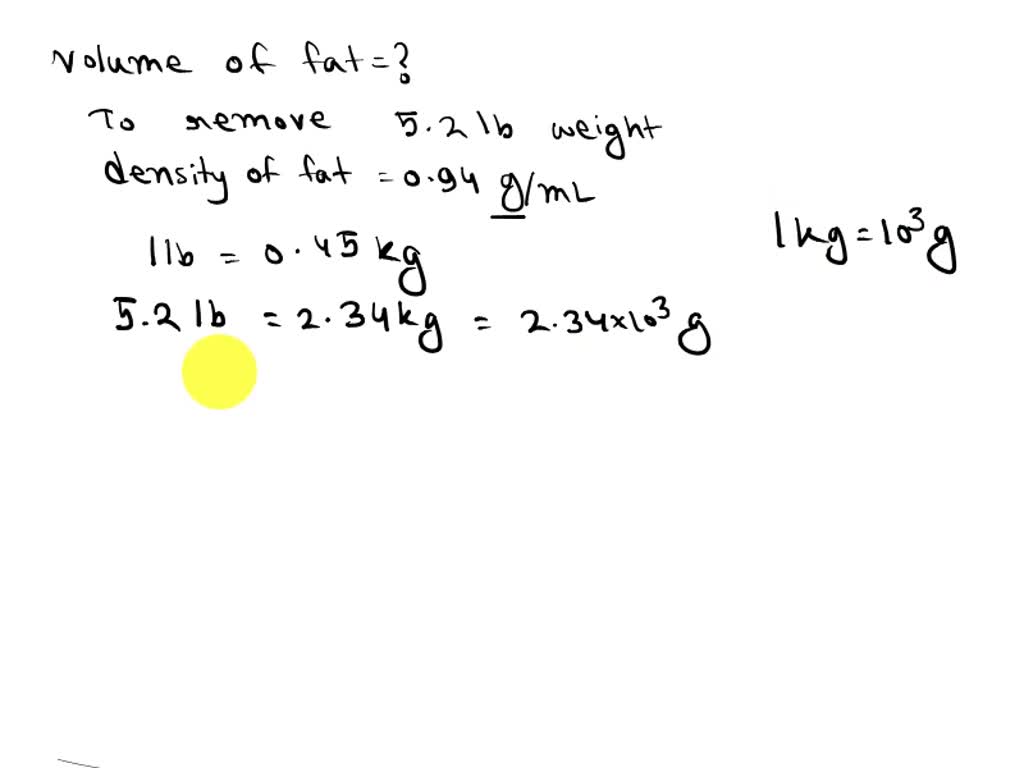 volume of fat = ?
To remove 5.2 lb weight
density of fat = 0.94 g/mL
1 lb = 0.45 kg
1 kg = 10³ g
5.2 lb = 2.34 kg = 2.34 × 10³ g